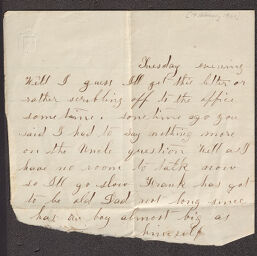 Tuesday evening
Well I guess I'll get this letter or
rather scribling off to the office
some time. sometime ago you
said I had to say nothing more
on the Uncle question. Well as I
have no room to talk now
so I'll go slow, Frank has got
to be old Dad not long since
has one boy almost big as
himself